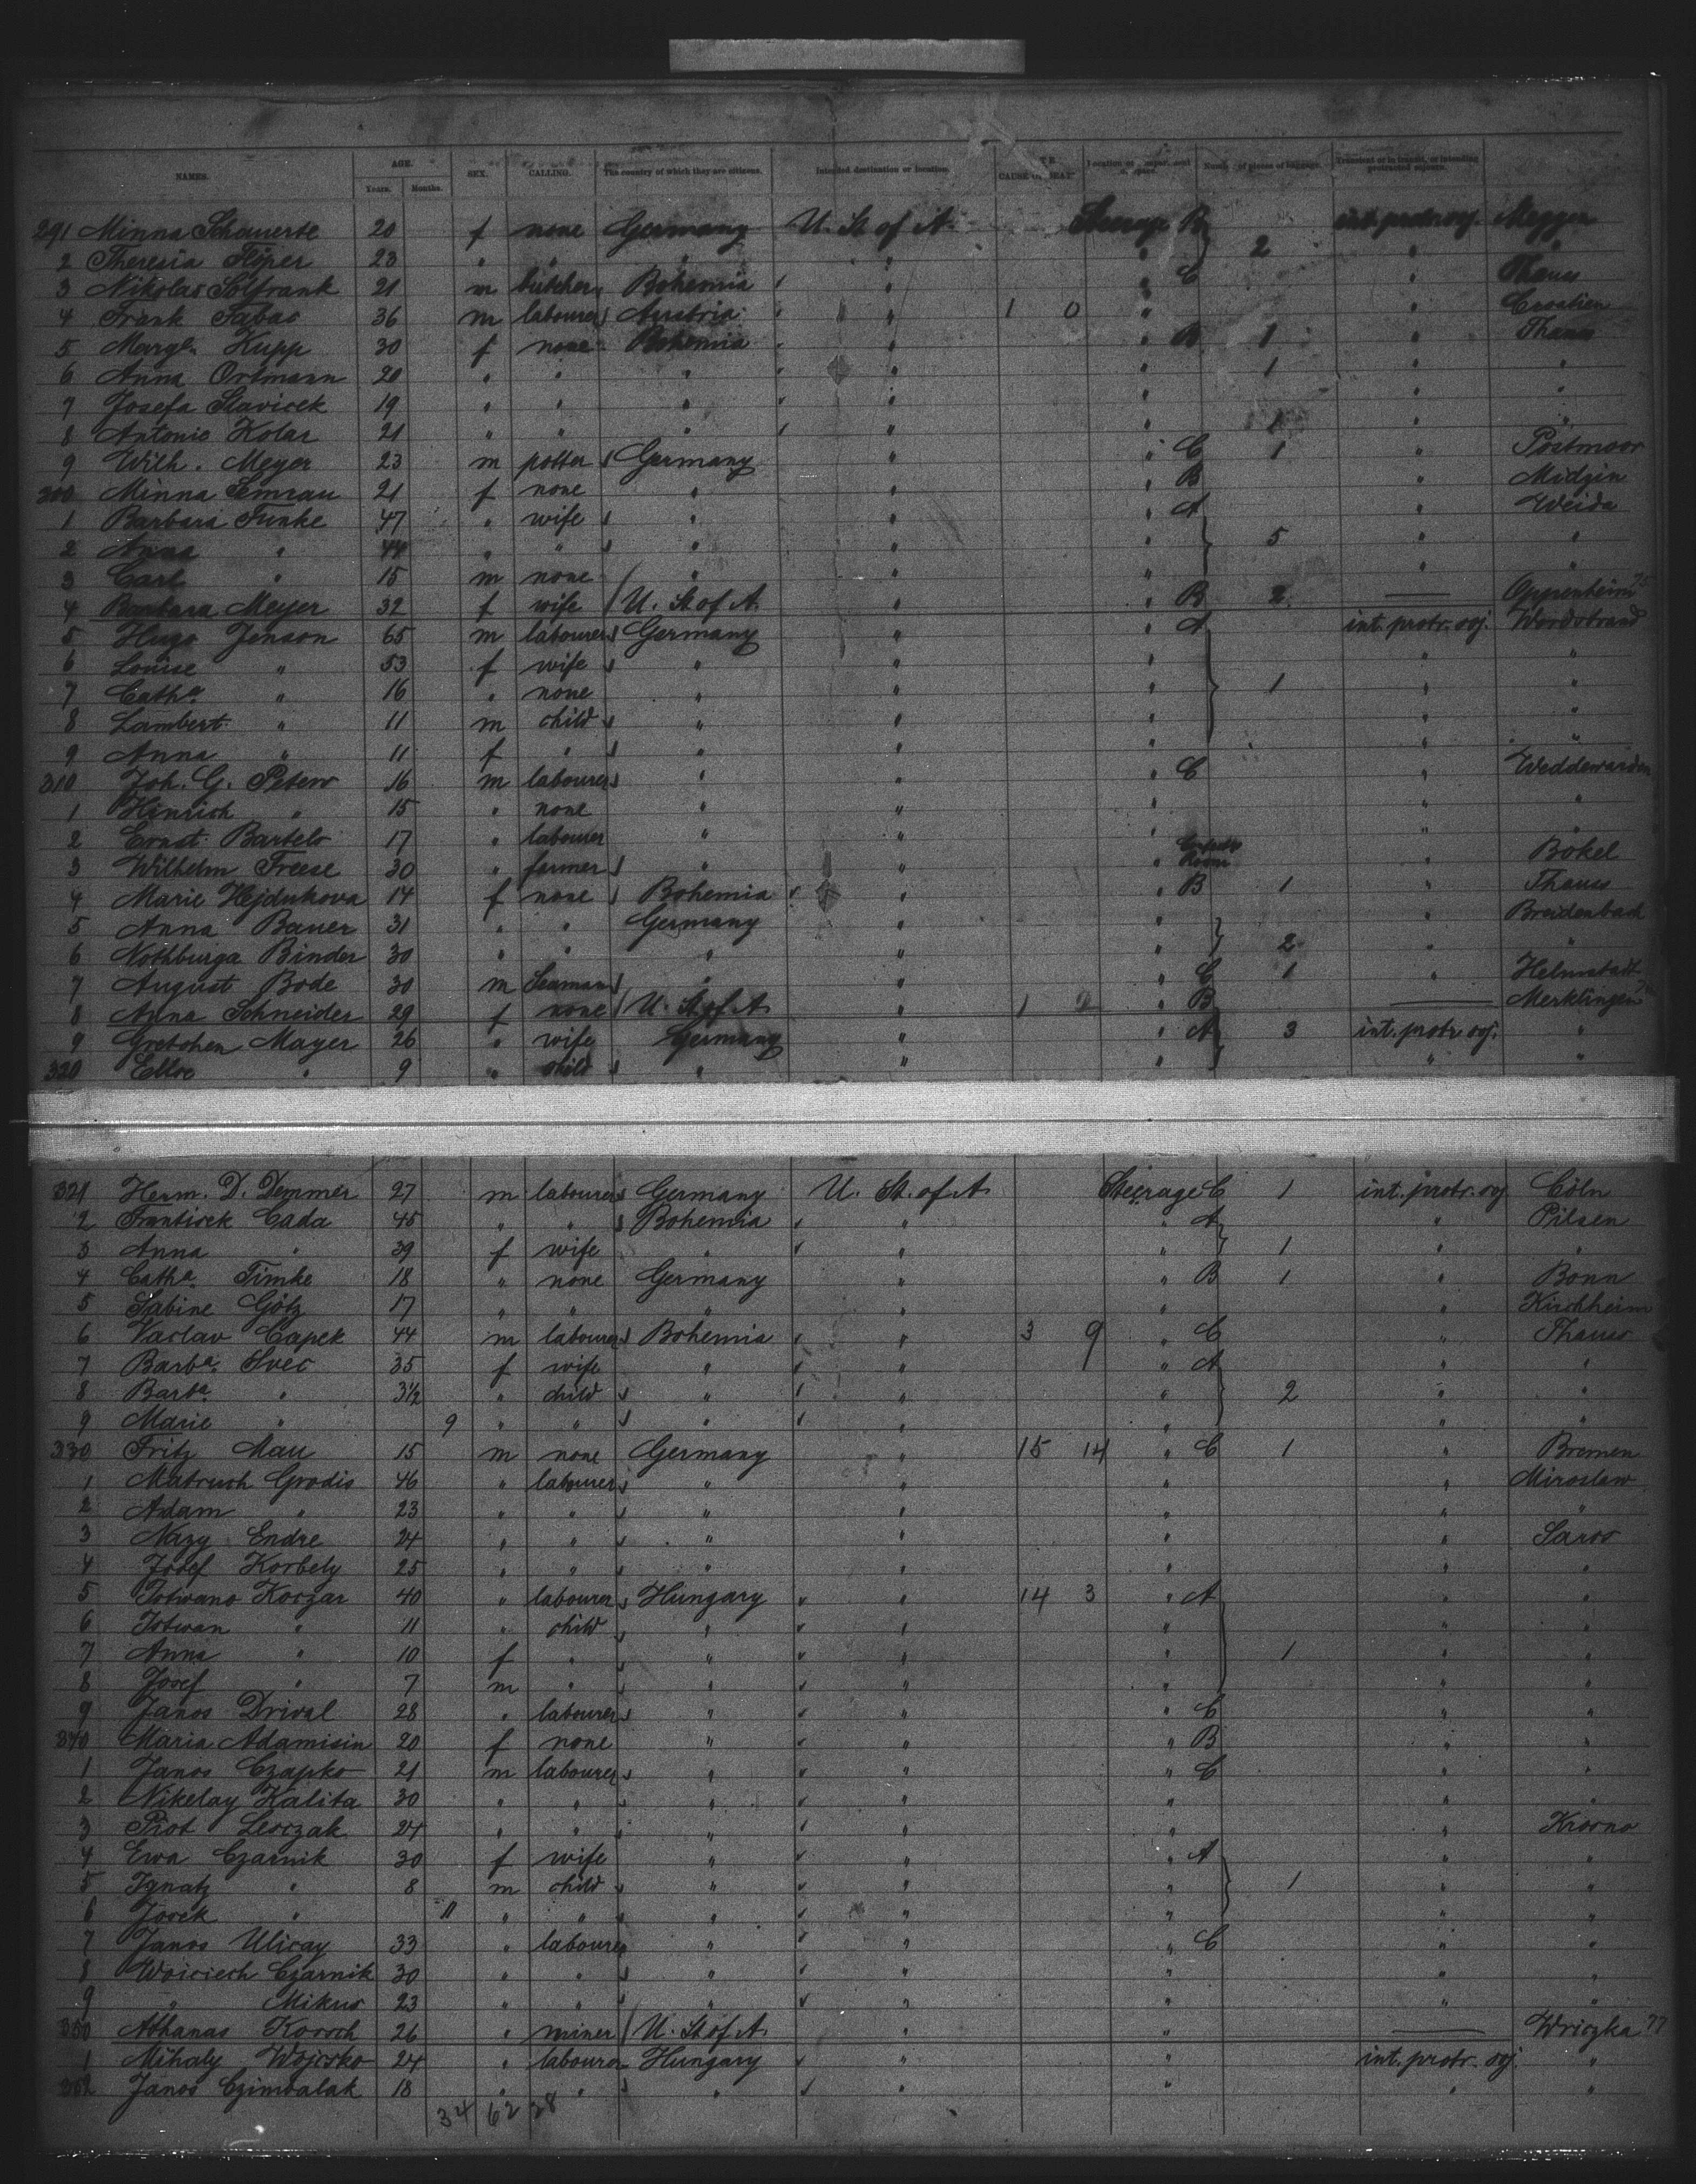 NAMES. AGE. Years. Months. SEX. CALLING. The country of which they are citizens. Intended destination or location. Location of compartment or space. Number of pieces of baggage. Transient or in transit, or intending protracted sojourn.
291 Minna Schauerte 20 f none Germany U. St. of A. Steerage B int. protr. soj. Meggen
2 Theresia 23 " " " " " 2 " "
3 Nikolas Solfrank 21 m butcher Bohemia " " C " Thauss
4 Frank Sabas 36 m labourer Austria " 1 0 " " Croatien
5 Marge. Kupp 30 f none Bohemia " " B 1 " Thauss
6 Anna Ortmann 20 " " " " " 1 " "
7 Josefa Slavicek 19 " " " " " " "
8 Antonie Kolar 21 " " " " " 1 " "
9 Wilh. Meyer 23 m potter Germany " " C 1 " Postmoor
300 Minna Semrau 21 f none " " " B " Midzin
1 Barbara Funke 47 " wife " " " A " Weida
2 Anna " 44 " " " " " 5 " "
3 Carl " 15 m none " " " " "
4 Barbara Meyer 32 f wife U. St. of A. " " B 2 — Oppenheim 75
5 Hugo Jenson 65 m labourer Germany " " A int. protr. soj. Wordstrand
6 Louise " 53 f wife " " " " "
7 Catha. " 16 " none " " " 1 " "
8 Lambert " 11 m child " " " " "
9 Anna " 11 f " " " " " "
310 Joh. G. Peters 16 m labourer " " " C " Weddewarden
1 Hinrich " 15 " none " " " " "
2 Ernst Bartels 17 " labourer " " " " "
3 Wilhelm Freese 30 " farmer " " " Room " Bokel
4 Marie Hejdukova 14 f none Bohemia " " B 1 " Thauss
5 Anna Bauer 31 " " Germany " " " Breidenbach
6 Nothburga Binder 30 " " " " " 2 " "
7 August Bode 30 m Seaman " " " C 1 " Helmstadt
8 Anna Schneider 29 f none U. St. of A. " 1 0 " B — Merklingen
9 Gretchen Mayer 26 " wife Germany " " A 3 int. protr. soj. "
320 Else " 9 " child " " " " "
321 Herm. D. Demmer 27 m labourer Germany U. St. of A. Steerage C 1 int. protr. soj. Cöln
2 Frantisek Cada 45 " " Bohemia " " A " Pilsen
3 Anna " 39 f wife " " " 1 " "
4 Catha. Timke 18 " none Germany " " B 1 " Bonn
5 Sabine Götz 17 " " " " " " Kirchheim
6 Vaclav Capek 44 m labourer Bohemia " 3 9 " C " Thauss
7 Barba. Svec 35 f wife " " " A " "
8 Barba. " 3½ " child " " " 2 " "
9 Marie " 9 " " " " " " "
330 Fritz Mau 15 m none Germany " 15 14 " C 1 " Bremen
1 Matruch Grodis 46 " labourer " " " " Miroslaw
2 Adam " 23 " " " " " " "
3 Nazy Endre 24 " " " " " " Saros
4 Josef Korbely 25 " " " " " " "
5 Istwano Koczar 40 " labourer Hungary " 14 3 " A " "
6 Istwan " 11 " child " " " " "
7 Anna " 10 f " " " " 1 " "
8 Josef " 7 m " " " " " "
9 Janos Drival 28 " labourer " " " C " "
340 Maria Adamisin 20 f none " " " B " "
1 Janos Czapko 21 m labourer " " " C " "
2 Nikelay Kalita 30 " " " " " " "
3 Piot Lesczak 24 " " " " " " Krosno
4 Ewa Czarnik 30 f wife " " " A " "
5 Ignatz " 8 m child " " " 1 " "
6 Josek " 11 " " " " " " "
7 Janos Ulicay 33 " labourer " " " C " "
8 Woiciech Czarnik 30 " " " " " " "
9 " Mikus 23 " " " " " " "
350 Athanas Korsch 26 " miner U. St. of A. " " — Wriczka 77
1 Mihaly Wojcsko 24 " labourer Hungary " " int. protr. soj. "
352 Janos Czimbalak 18 " " " " " " "
34 62 28